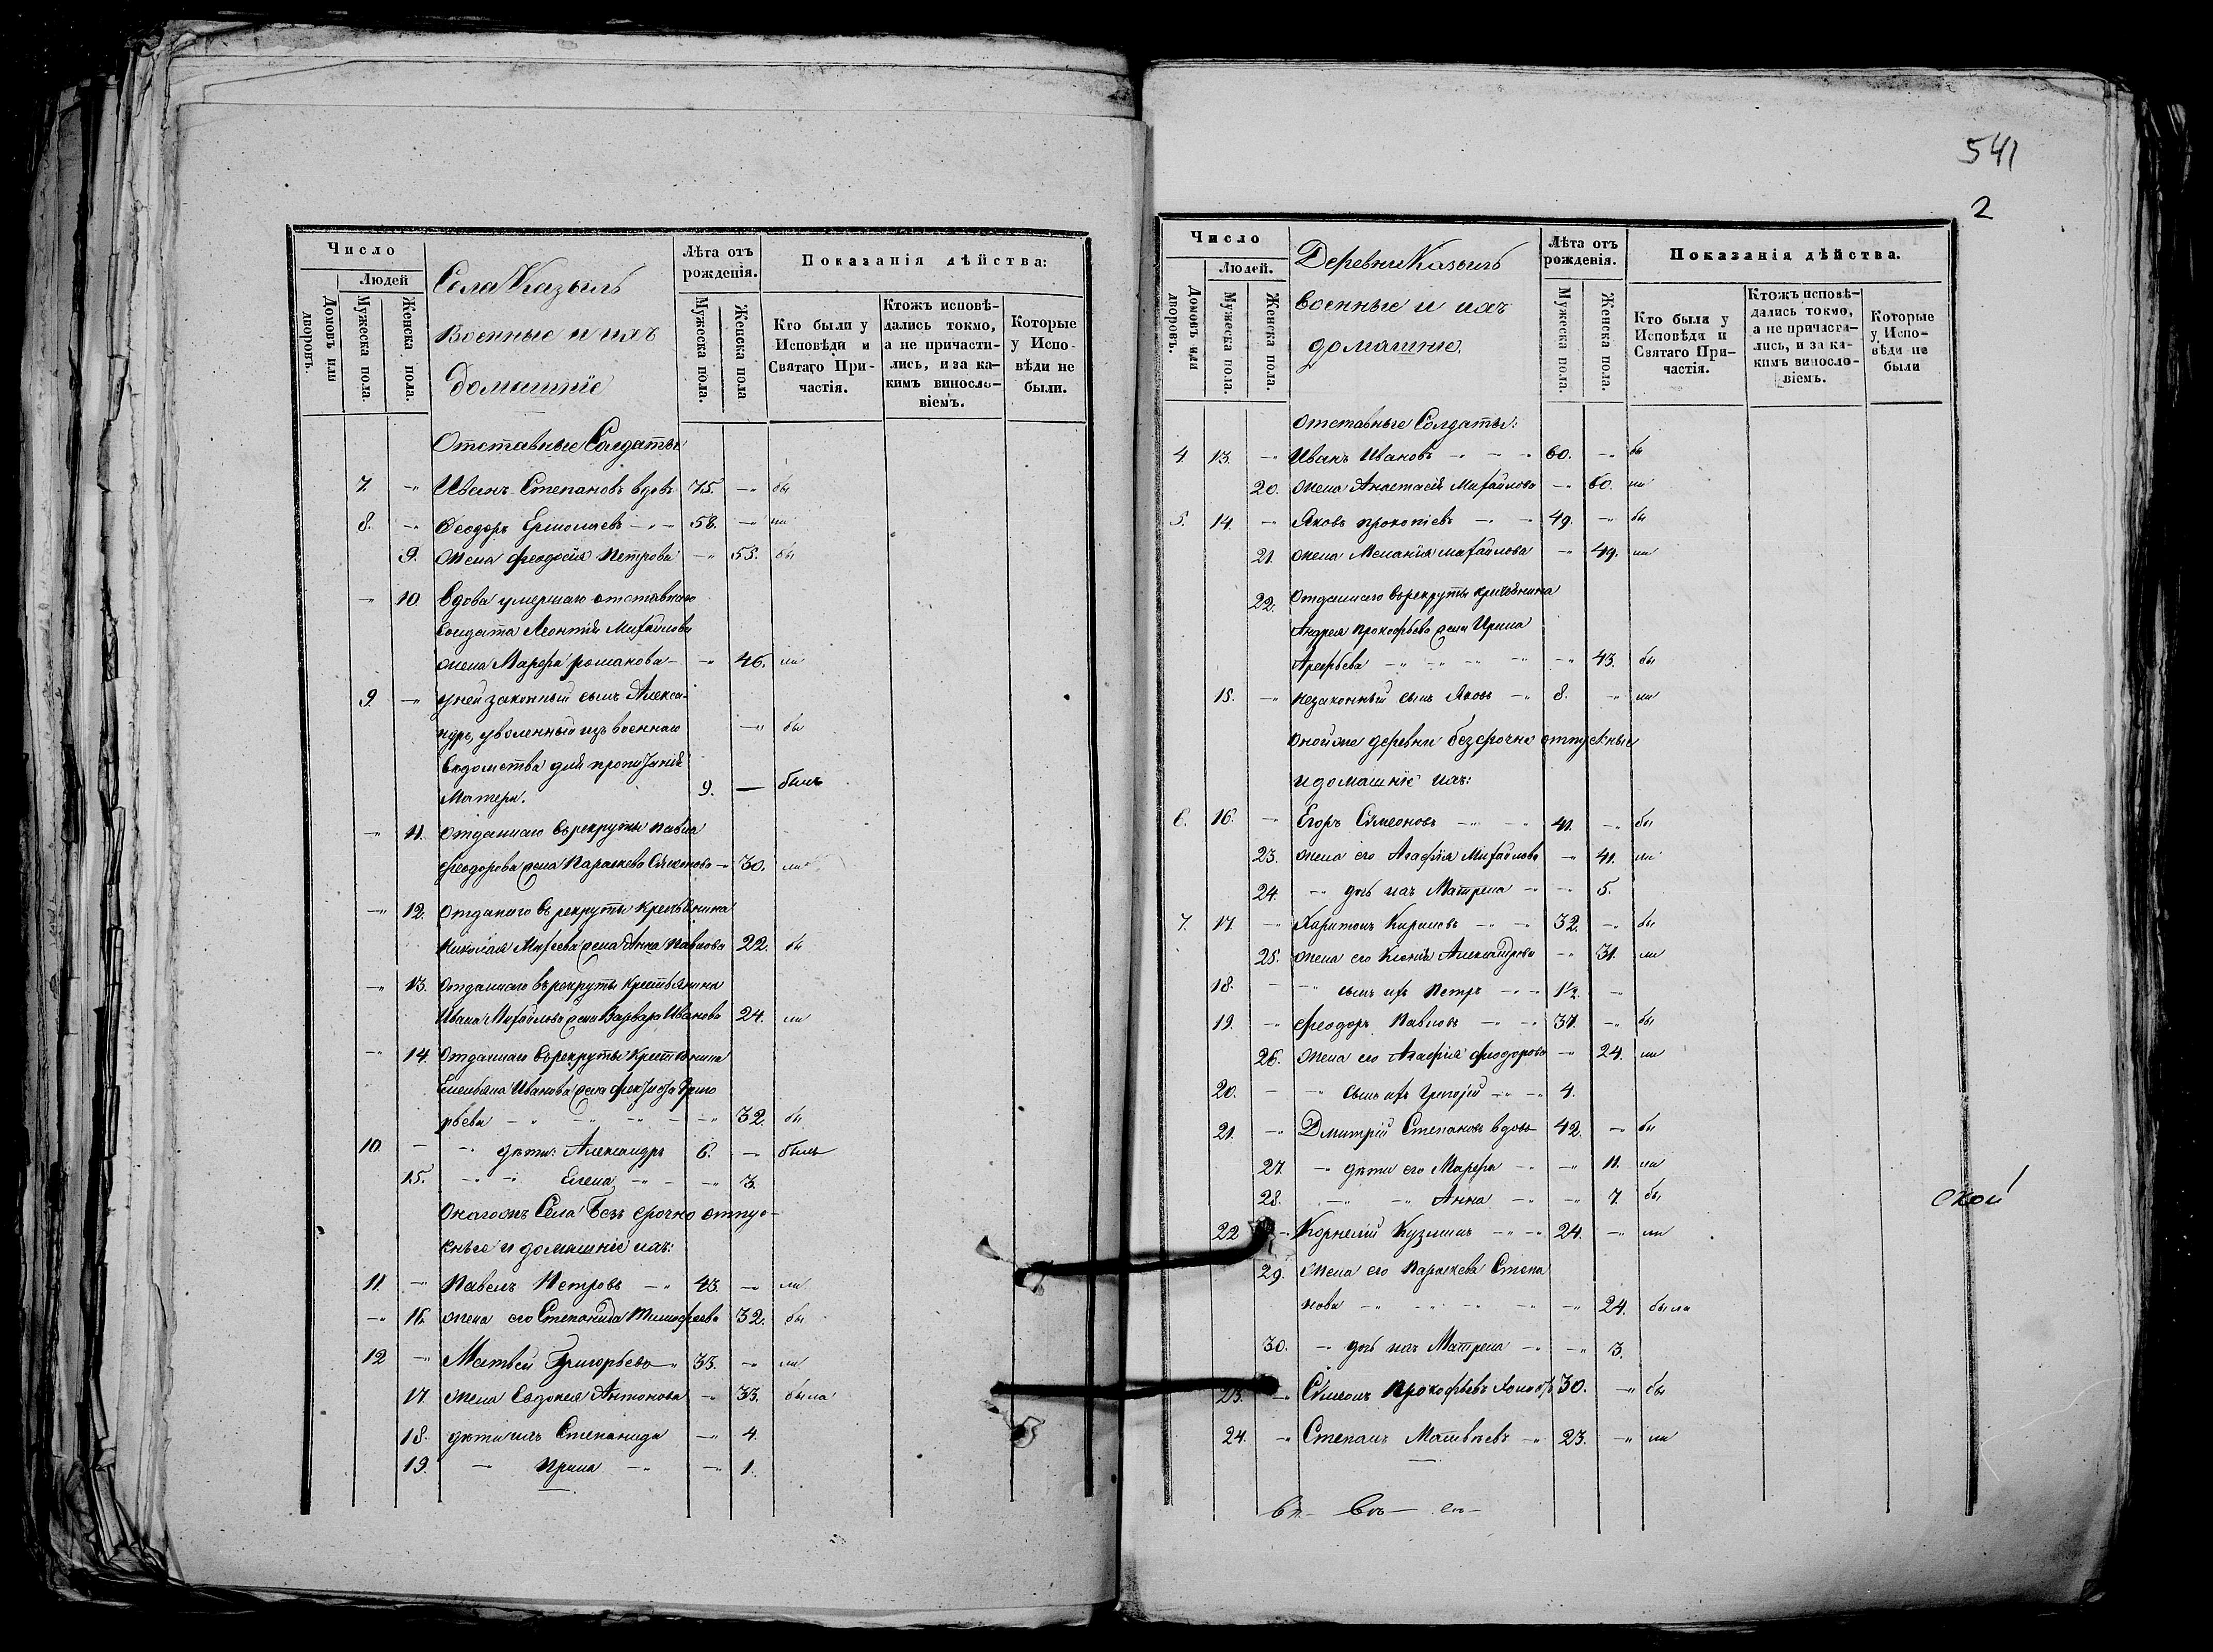 541
2
Число
Людей
Домовъ или дворовъ.
Мужеска пола.
Женска пола.
Села Казыль
Военные и ихъ
домашніе
Лѣта отъ рожденія.
Мужеска пола.
Женска пола
Показанія дѣйства:
Кто были у Исповѣди и Святаго Причастія.
Ктожъ исповѣдались токмо, а не причастились, и за какимъ винословіемъ.
Которые у Исповѣди не были.
Отставные Солдаты
7. -„ Иванъ Степановъ вдовъ 75. -„ бы
8. -„ Феодоръ Ермолаевъ -„- 58. -„ ли
9. Жена Феодосія Петрова -„ 55. бы
-„ 10. Вдова умершаго отставнаго
солдата Леонтія Михайлова
жена Марфа Романова -„ 46. ли
9. -„ у ней законный сынъ Алекса-
ндръ, уволенный изъ военнаго -„ бы
вѣдомства для пропитанія
Матери. 9. — былъ
-„ 11. Отданнаго въ рекруты Павла
Феодорова жена Параскева Симеонова - 30. ли
-„ 12. Отданаго въ рекруты крестьянина
Николая жена Анна Павлова 22. бы
-„ 13. Отданнаго въ рекруты крестьянина
Ивана Михайлова жена Варвара Иванова 24. ли
-„ 14. Отданнаго въ рекруты крестьянина
Емельяна Иванова жена Григо
рьева -„ -„ -„ -„ 32. бы
10. - -„ дѣти: Александръ 6. -„ былъ
15. -„ -„ Елена -„ - -„ 3.
Онагожъ Села Безъ срочно отпус-
кные и домашніе ихъ:
11. -„ Павелъ Петровъ -„ 43. -„ ли
-„ 16. жена его Степанида Тимофеева 32. бы
12 -„ Матвей Григорьевъ -„ 33. -„ ли
17. жена Евдокея Антонова -„ 33. была
18. дѣти ихъ Степанида -„ 4.
19. -„ Ирина -„ -„ 1.
Число
Людей.
Домовъ или дворовъ.
Мужеска пола.
Женска пола.
Деревни Казыль
военные и ихъ
домашніе.
Лѣта отъ рожденія.
Мужеска пола.
Женска пола.
Показанія дѣйства.
Кто были у Исповѣди и Святаго Причастія.
Ктожъ исповѣдались токмо, а не причастились, и за какимъ винословіемъ.
Которые у Исповѣди не были
Отставные Солдаты:
4. 13. -„ Иванъ Ивановъ -„ -„ -„ 60. -„ бы
20. жена Анастасія Михайлова -„ 60. ли
5. 14. -„ Яковъ Прокопіевъ -„ -„ 49. -„ бы
21. жена Меланія Михайлова -„ 49. ли
22. Отданнаго въ рекруты крестьянина
Андрея Прокофьева жена Ирина
Арефьева -„ -„ -„ -„ -„ 43. бы
15. -„ незаконный сынъ Яковъ -„ 8. -„ ли
Оной же деревни безсрочно отпускные
и домашніе ихъ:
6. 16. -„ Егоръ Симеоновъ -„ -„ 41. -„ бы
23. жена его Агафія Михайлова -„ 41. ли
24. -„ дочь ихъ Матрена -„ -„ 5.
7. 17. -„ Харитонъ Кириловъ -„ -„ 32. -„ бы
25. жена его Ксенія Александрова -„ 31. ли
18. - -„ сынъ ихъ Петръ -„ -„ 1½. -„
19. -„ Феодоръ Павловъ -„ -„ 37. -„ бы
26. жена его Агафія Феодорова -„ 24. ли
20. - -„ сынъ ихъ Григорій -„ -„ 4.
21. -„ Дмитрій Степановъ вдовъ 42. -„ бы
27. -„ дѣти его Марфа -„ -„ 11. ли
28. -„ -„ Анна -„ -„ 7. бы
22 - Корнелій Кузминъ -„ -„ 24. -„ ли
29. жена его Параскева Степа
нова -„ -„ -„ -„ -„ 24. была
30. -„ дочь ихъ Матрена -„ -„ 3.
23. -„ Симеонъ Прокофьевъ 30. -„ бы
24. -„ Степанъ Матвѣевъ -„ 23. -„ ли
ской